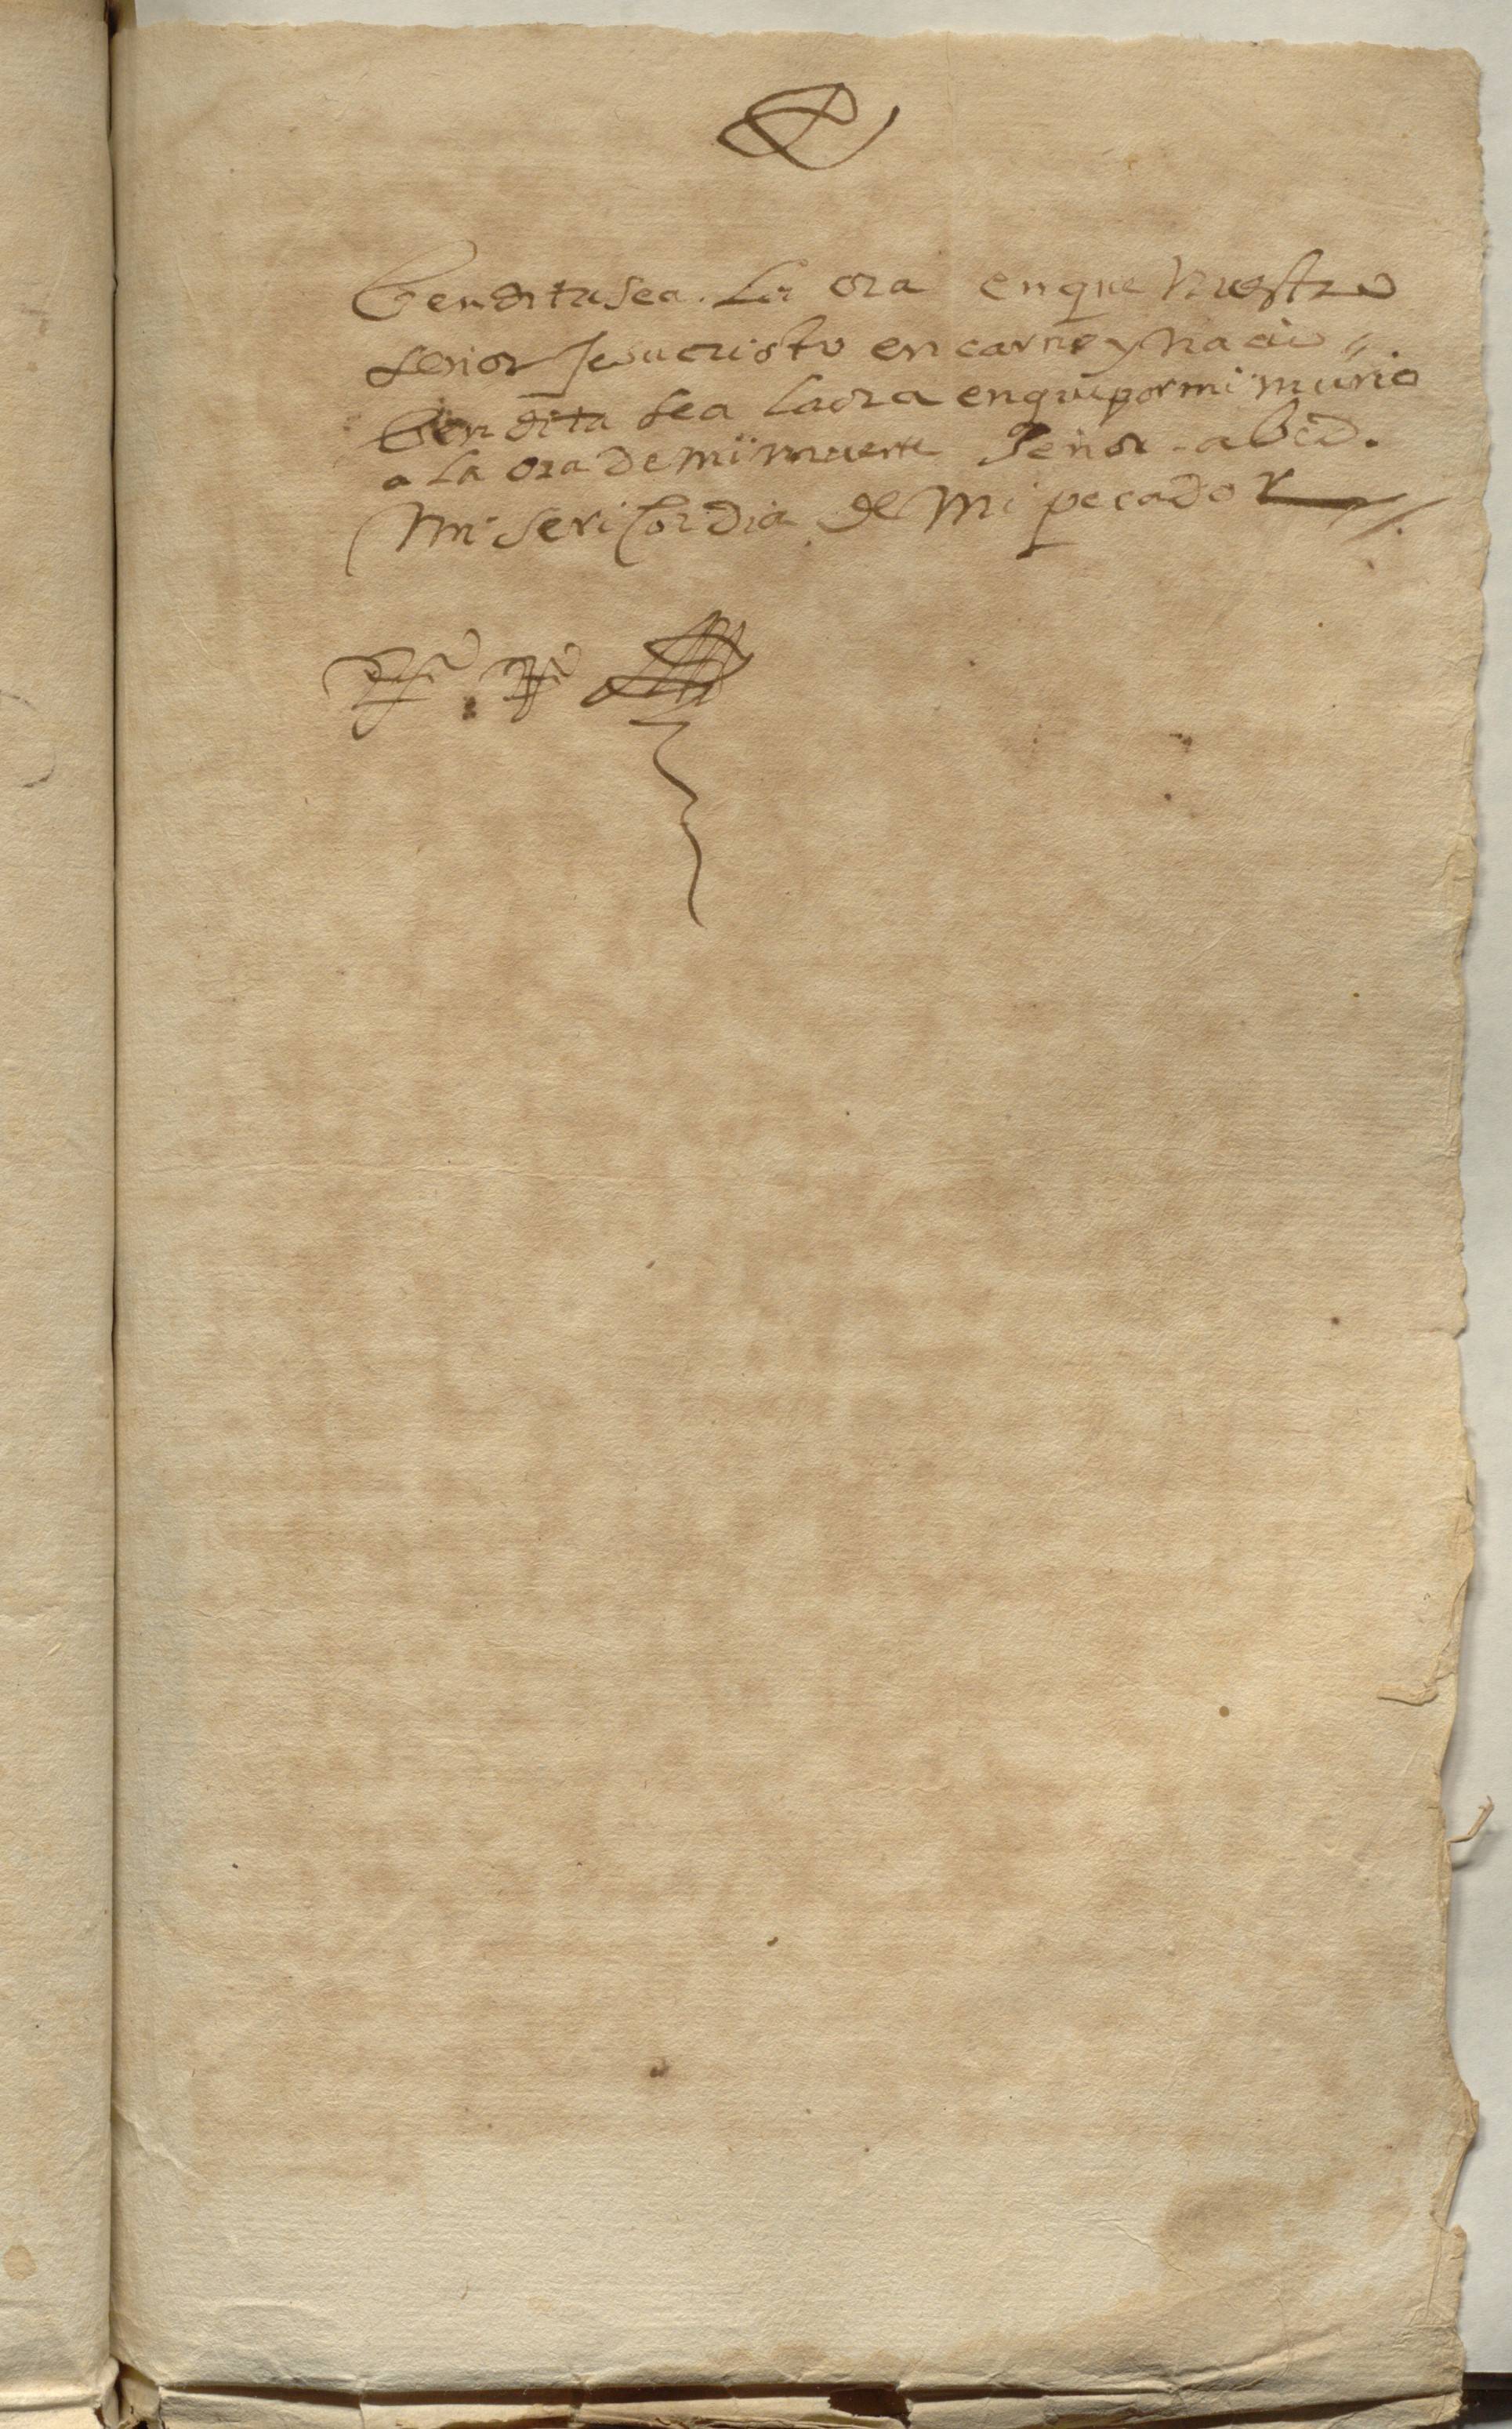 bendita sea. la ora en que nuestro
senior Jesucristo encarno y nacio //.
bendita sea la ora en que por mi murio
a la ora de mi muerte señor - abed.
Misericordia de mi pecador //.